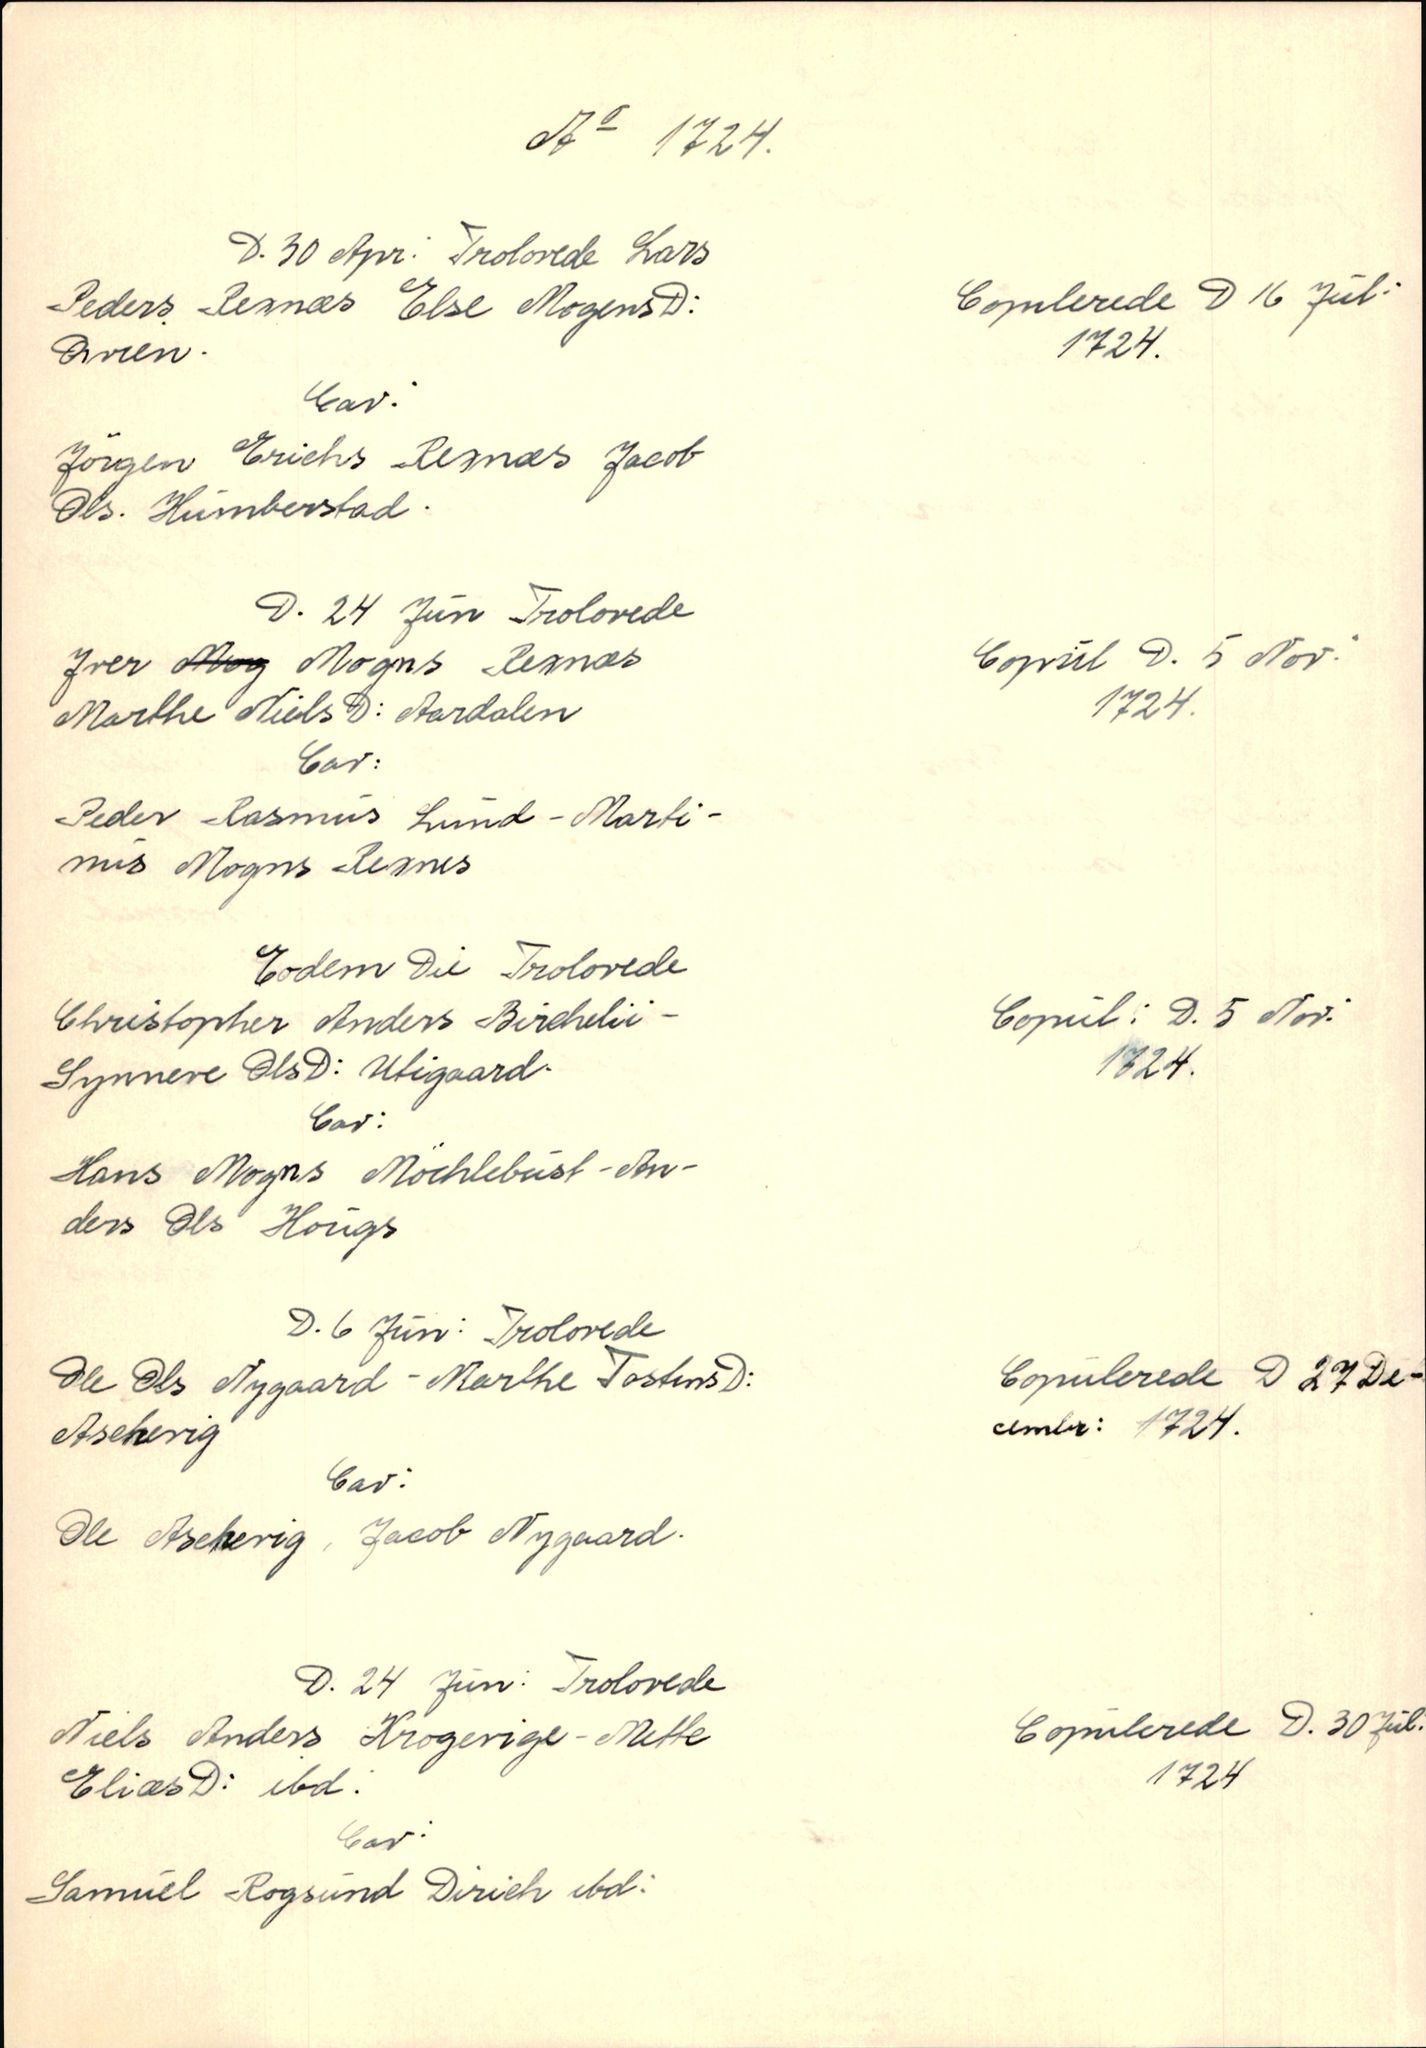 Aº 1724.
D. 30 Apr: Trolovede Lars
Peders Rexnæs Else MogensD:
Copulerede D 16 Jul:
1724.
Cav:
Jörgen Erichs Rexnæs Jacob
Ols. Humberstad.
D. 24 Jun Trolovede
Jver Mog Mogns Rexnæs
Copul D. 5 Nov:
Marthe NielsD: Aardalen
1724.
Cav:
Peder Rasmus Lund - Marti-
nus Mogns Rexnes
Eodem Die Trolovede
Christopher Anders Birchelii -
Copul: D. 5 Nov:
Synneve OlsD: Utigaard.
1724.
Cav:
Hans Mogns Möchlebust - An-
ders Ols Hougs
D. 6 Jun: Trolovede
Ole Ols Nygaard - Marthe TostensD:
Copulerede D 27 De-
Aschevig
cembr: 1724.
Cav:
Ole Aschevig, Jacob Nygaard.
D. 24 Jun: Trolovede
Niels Anders Krogevige - Mette
Copulerede D. 30 Jul:
EliæsD: ibd:
1724
Cav:
Samuel Rogsund Dirich ibd: